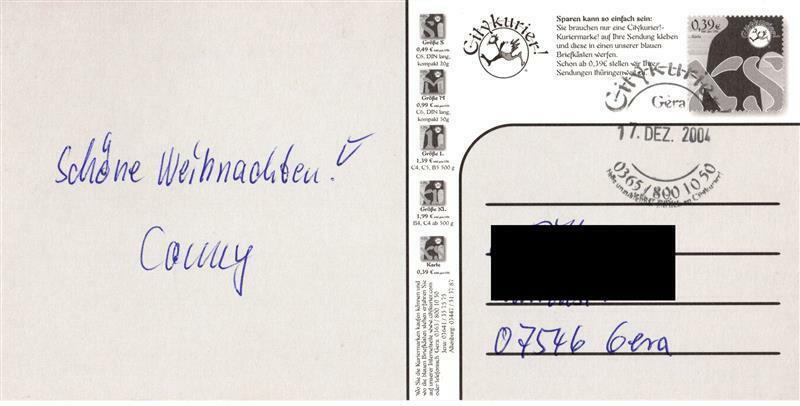 Schöne Weihnachten!
Conny
Größe S
0,49 €
C6, DIN lang,
kompakt 20g
Größe M
0,99 €
C6, DIN lang,
kompakt 50g
Größe L
1,39 €
C4, C5, B5 500 g
Größe XL
1,99 €
B4, C4 ab 500 g
Karte
0,39 €
Wo Sie die Kuriermarken kaufen können und
wo die blauen Briefkästen stehen erfahren Sie
auf unserer Internetseite www.citykurier.com
oder telefonisch Gera: 0365/ 800 10 50
Jena: 03641/ 35 75 75
Altenburg: 03447/ 51 37 87
Citykurier!
Sparen kann so einfach sein:
Sie brauchen nur eine Citykurier!-
Kuriermarke! auf Ihre Sendung kleben
und diese in einen unserer blauen
Briefkästen werfen.
Schon ab 0,39€ stellen wir Ihre
Sendungen Thüringenweit zu.
0,39€
Citykurier!
Citykurier
Gera
17. DEZ. 2004
0365/800 10 50
07546 Gera